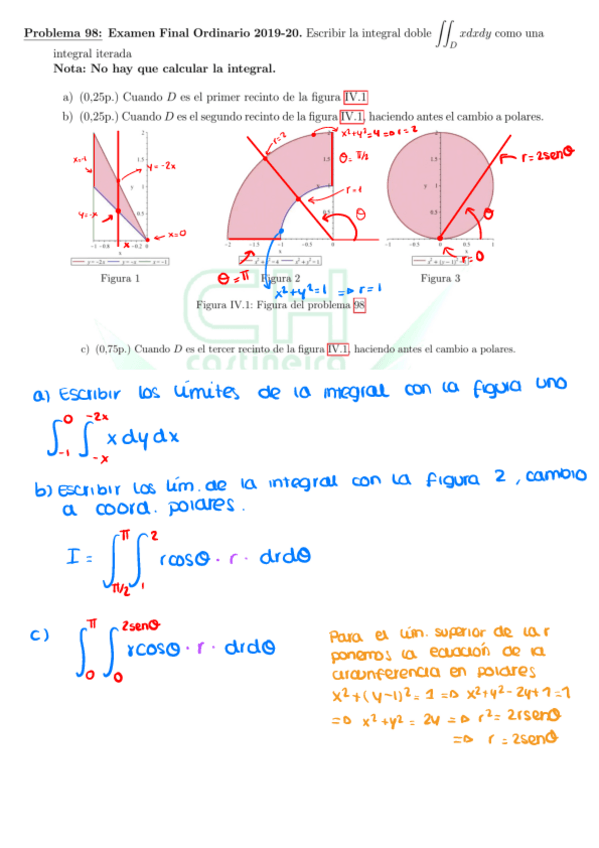 Problema 98: Examen Final Ordinario 2019-20. Escribir la integral doble ∬_D xdxdy como una
integral iterada
Nota: No hay que calcular la integral.
a) (0,25p.) Cuando D es el primer recinto de la figura IV.1
b) (0,25p.) Cuando D es el segundo recinto de la figura IV.1, haciendo antes el cambio a polares.
x=-1
y=-2x
y=-x
x=0
x
r=2
x²+y²=4=D r=2
θ=π/2
r=1
θ
θ=π
x²+y²=1 =D r=1
r=2senθ
θ
r=0
Figura 1
Figura 2
Figura 3
Figura IV.1: Figura del problema 98
CH
castineira
c) (0,75p.) Cuando D es el tercer recinto de la figura IV.1, haciendo antes el cambio a polares.
a) Escribir los límites de la integral con la figura uno
∫_{-1}^{0} ∫_{-x}^{-2x} x dy dx
b) Escribir los lím. de la integral con la figura 2, cambio
a coord. polares.
I = ∫_{π/2}^{π} ∫_{1}^{2} rcosθ · r · drdθ
c) ∫_{0}^{π} ∫_{0}^{2senθ} rcosθ · r · drdθ
Para el lím. superior de la r
ponemos la ecuación de la
circunferencia en polares
x²+(y-1)²=1 =D x²+y²-2y+1=1
=D x²+y²=2y =D r²=2rsenθ
=D r=2senθ